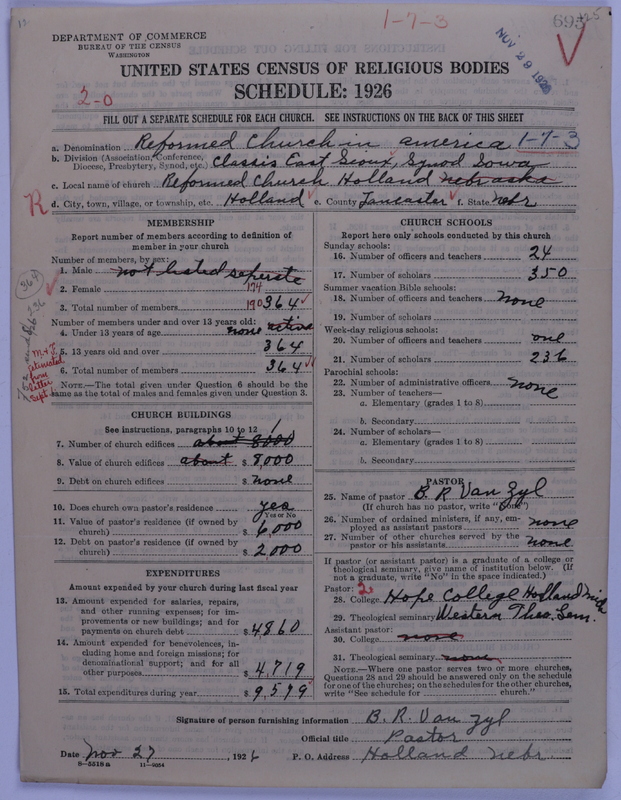 1-7-3
693
NOV 29 1926
DEPARTMENT OF COMMERCE
BUREAU OF THE CENSUS
WASHINGTON
UNITED STATES CENSUS OF RELIGIOUS BODIES
SCHEDULE: 1926
2-0
FILL OUT A SEPARATE SCHEDULE FOR EACH CHURCH. SEE INSTRUCTIONS ON THE BACK OF THIS SHEET
a. Denomination Reformed Church in america 1-7-3
b. Division (Association, Conference, Diocese, Presbytery, Synod, etc.) Classis East Sioux, Synod Iowa
c. Local name of church Reformed Church Holland Nebraska
R
d. City, town, village, or township, etc. Holland e. County Lancaster f. State Nebr
MEMBERSHIP
Report number of members according to definition of
member in your church
Number of members, by sex:
1. Male not listed seperate
2. Female 174
3. Total number of members 190 364
Number of members under and over 13 years old:
4. Under 13 years of age none active
5. 13 years old and over 364
6. Total number of members 364
NOTE.—The total given under Question 6 should be the
same as the total of males and females given under Question 3.
M & F
estimated
from
letter
Sept.
CHURCH BUILDINGS
See instructions, paragraphs 10 to 12
7. Number of church edifices about 8000 1
8. Value of church edifices about $ 8,000
9. Debt on church edifices $ none
10. Does church own pastor's residence? yes
Yes or No
11. Value of pastor's residence (if owned by
church) $ 6,000
12. Debt on pastor's residence (if owned by
church) $ 2000
EXPENDITURES
Amount expended by your church during last fiscal year
13. Amount expended for salaries, repairs,
and other running expenses; for im-
provements or new buildings; and for
payments on church debt $ 4860
14. Amount expended for benevolences, in-
cluding home and foreign missions; for
denominational support; and for all
other purposes $ 4,719
15. Total expenditures during year $ 9,579
CHURCH SCHOOLS
Report here only schools conducted by this church
Sunday schools:
16. Number of officers and teachers 24
17. Number of scholars 350
Summer vacation Bible schools:
18. Number of officers and teachers none
19. Number of scholars
Week-day religious schools:
20. Number of officers and teachers one
21. Number of scholars 236
Parochial schools:
22. Number of administrative officers none
23. Number of teachers—
a. Elementary (grades 1 to 8)
b. Secondary
24. Number of scholars—
a. Elementary (grades 1 to 8)
b. Secondary
PASTOR
25. Name of pastor B. R. Van Zyl
(If church has no pastor, write "None")
26. Number of ordained ministers, if any, em-
ployed as assistant pastors none
27. Number of other churches served by the
pastor or his assistants none
If pastor (or assistant pastor) is a graduate of a college or
theological seminary, give name of institution below. (If
not a graduate, write "No" in the space indicated.)
Pastor: 2
28. College Hope College Holland Mich
29. Theological seminary Western Theo. Sem.
Assistant pastor:
30. College none
31. Theological seminary none
NOTE.—Where one pastor serves two or more churches,
Questions 28 and 29 should be answered only on the schedule
for one of the churches; on the schedules for the other churches,
write "See schedule for church."
Signature of person furnishing information B. R. Van Zyl
Official title Pastor
Date Nov 27, 1926 P. O. Address Holland Nebr.
8-5518a 11-9054